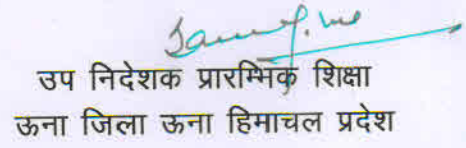 उप निदेशक प्रारम्भिक शिक्षा
ऊना जिला ऊना हिमाचल प्रदेश